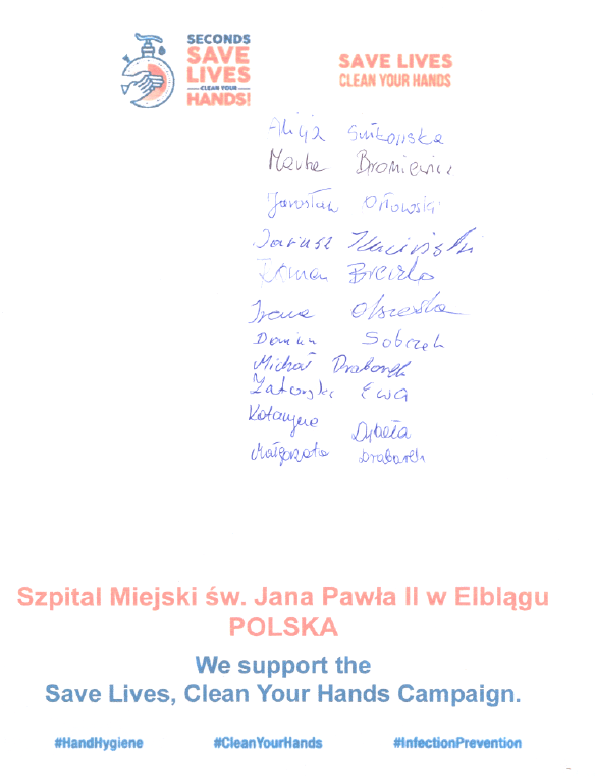 SECONDS
SAVE
LIVES
CLEAN YOUR
HANDS!
SAVE LIVES
CLEAN YOUR HANDS
Alicja
Bromiewicz
Jarosław Orłowski
Dariusz
Roman
Irena Olszewska
Damian Sobczak
Michał Drabarek
Ewa
Katarzyna Dybela
Małgorzata Drabarek
Szpital Miejski św. Jana Pawła II w Elblągu
POLSKA
We support the
Save Lives, Clean Your Hands Campaign.
#HandHygiene #CleanYourHands #InfectionPrevention